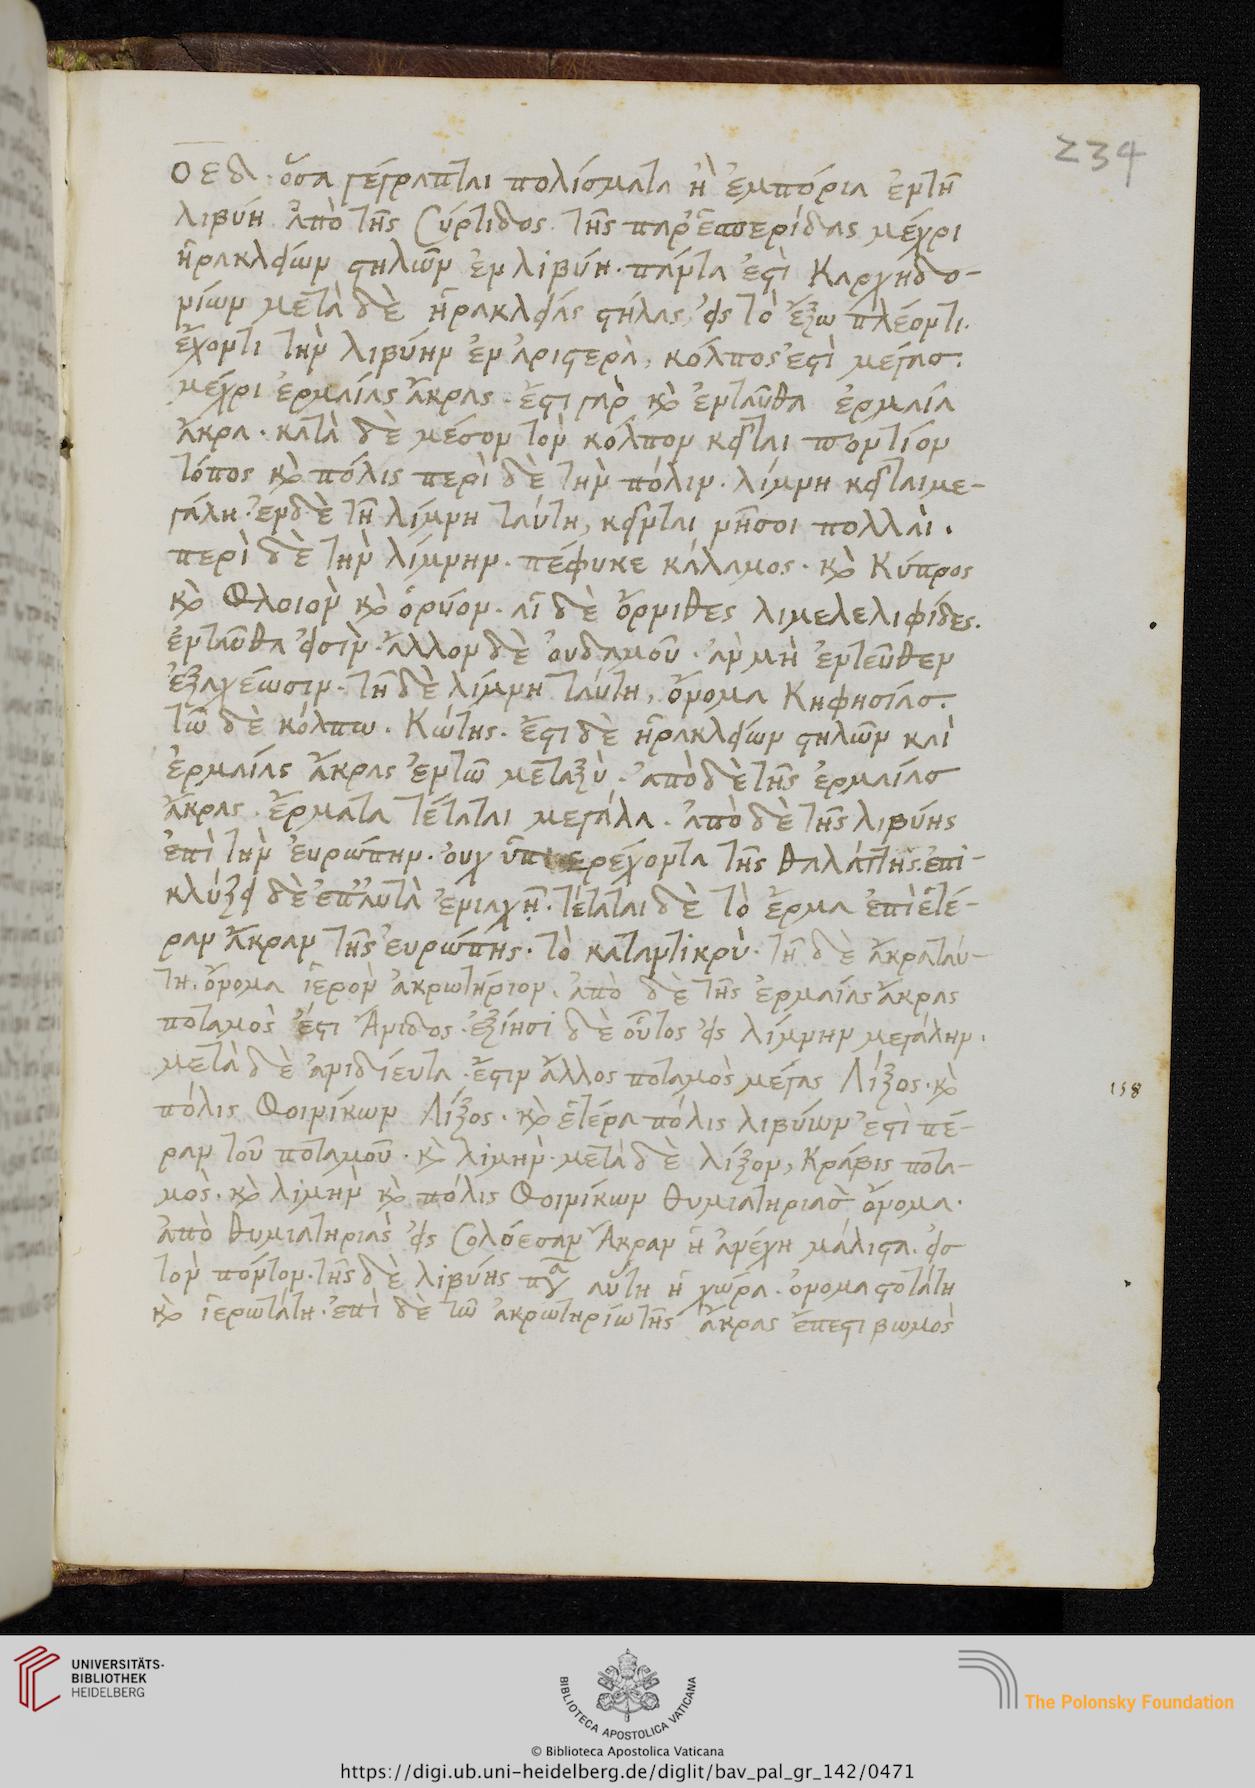 234
οεδ. ὅσα γέγραπται πολίσματα ἢ ἐμπόρια ἐν τῆ
λιβύη ἀπὸ τῆς Σύρτιδος τῆς παρ' ἑσπερίδας μέχρι
ἡρακλείων στηλῶν ἐν λιβύη. πάντα ἐστὶ Καρχηδο-
νίων μετὰ δὲ ἡρακλείας στήλας, εἰς τὸ ἔξω πλέοντι.
ἔχοντι τὴν λιβύην ἐν ἀριστερὰ, κόλπος ἐστὶ μέγας.
μέχρι ἑρμαίας ἄκρας. ἔστι γὰρ κ̀ ἐνταῦθα ἑρμαία
ἄκρα. κατὰ δὲ μέσον τὸν κόλπον κεῖται ποντίον
τόπος κ̀ πόλις περὶ δὲ τὴν πόλιν. λίμνη κεῖται με-
γάλη. ἐν δὲ τῆ λίμνη ταύτη, κεῖνται νῆσοι πολλαὶ.
περὶ δὲ τὴν λίμνην. πέφυκε κάλαμος. κ̀ Κύπρος
κ̀ Φλοιὸν κ̀ ὁρύον. αἱ δὲ ὄρνιθες λιμελελιφίδες.
ἐνταῦθα εἰσὶν. ἄλλον δὲ οὐδαμοῦ. ἀν μὴ ἐντεῦθεν
ἐξαχέωσιν. τῆ δὲ λίμνη ταύτη, ὄνομα Κηφησίας.
τῶ δὲ κόλπω. Κώτης. ἔστι δὲ ἡρακλείων στηλῶν καὶ
ἑρμαίας ἄκρας ἐν τῶ μεταξὺ. ἀπὸ δὲ τῆς ἑρμαίας
ἄκρας. ἕρματα τέταται μεγάλα. ἀπὸ δὲ τῆς λιβύης
ἐπὶ τὴν εὐρώπην. οὐχ ὑπερέχοντα τῆς θαλάττης. ἐπι-
κλύζει δὲ ἐπ' αὐτὰ ἐνιαχῆ. τέταται δὲ τὸ ἕρμα ἐπὶ ἑτέ-
ραν ἄκραν τῆς εὐρώπης. τὸ καταντικρὺ. τῆ δὲ ἄκρα ταύ-
τη. ὄνομα ἱερὸν ἀκρωτήριον. ἀπὸ δὲ τῆς ἑρμαίας ἄκρας
ποταμὸς ἐστι Ἄνιδος. ἐξίησι δὲ οὗτος εἰς λίμνην μεγάλην.
μετὰ δὲ ἀνιδίευτα. ἔστιν ἄλλος ποταμὸς μέγας Λίξος. κ̀
πόλις Φοινίκων Λίξος. κ̀ ἑτέρα πόλις λιβύων ἐστὶ πέ-
ραν τοῦ ποταμοῦ. κ̀ λιμὴν. μετὰ δὲ λίξον, Κράβις ποτα-
μὸς. κ̀ λιμὴν κ̀ πόλις Φοινίκων θυμιατηριὰς ὄνομα.
ἀπὸ θυμιατηριὰς εἰς Σολόεσαν Ἄκραν ἡ ἀνέχη μάλιστα. εἰς
τὸν πόντον. τῆς δὲ λιβύης πᾱ αὕτη ἡ χώρα. ὀνομαστοτάτη
κ̀ ἱερωτάτη. ἐπὶ δὲ τῶ ἀκρωτηρίω τῆς ἄκρας ἔπεστι βωμὸς
158
UNIVERSITÄTS-
BIBLIOTHEK
HEIDELBERG
BIBLIOTECA APOSTOLICA VATICANA
The Polonsky Foundation
© Biblioteca Apostolica Vaticana
https://digi.ub.uni-heidelberg.de/diglit/bav_pal_gr_142/0471